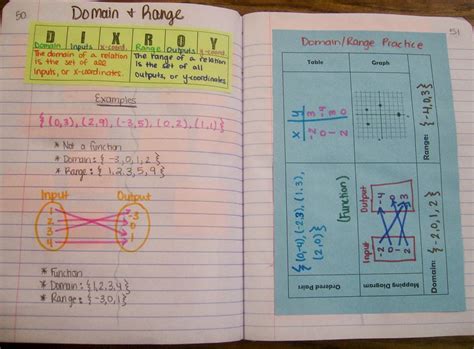 50.
Domain + Range
D I X R O Y
Domain Inputs x-coord. Range Outputs y-coord.
The domain of a relation
is the set of all
inputs, or x-coordinates.
The range of a relation
is the set of all
outputs, or y-coordinates
Examples
{(0,3), (2,9), (-3,5), (0,2), (1,1)}
* Not a function
* Domain: { -3, 0, 1, 2 }
* Range: { 1, 2, 3, 5, 9 }
Input Output
1
2
3
4
-3
0
1
* Function
* Domain: {1,2,3,4}
* Range: {-3,0,1}
51
Domain/Range Practice
Table
x y
-2 3
0 -4
1 3
2 0
Graph
Range: {-4,0,3}
Ordered Pairs
{(0,-4), (-2,3), (1,3),
(2,0)}
(Function)
Mapping Diagram
Input Output
-2
0
1
2
-4
0
3
Domain: {-2,0,1,2}